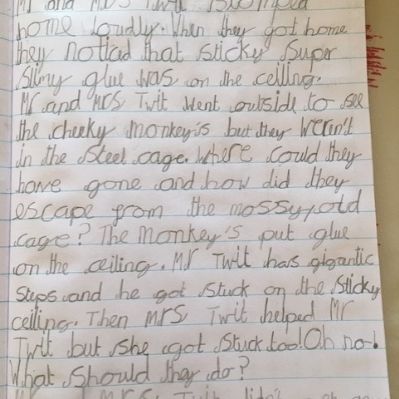 Mr and Mrs Twit stomped
home loudly. When they got home
they notiad that sticky super
slimy glue was on the ceiling.
Mr and Mrs Twit went outside to see
the cheeky monkey's but they wern't
in the steel cage. Where could they
have gone and how did they
escape from the mossy, old
cage? The Monkey's put glue
on the ceiling. Mr Twit has gigantic
steps and he got stuck on the sticky
ceiling. Then Mrs Twit helped Mr
Twit but she got stuck too! Oh no!
What should they do?
Twit